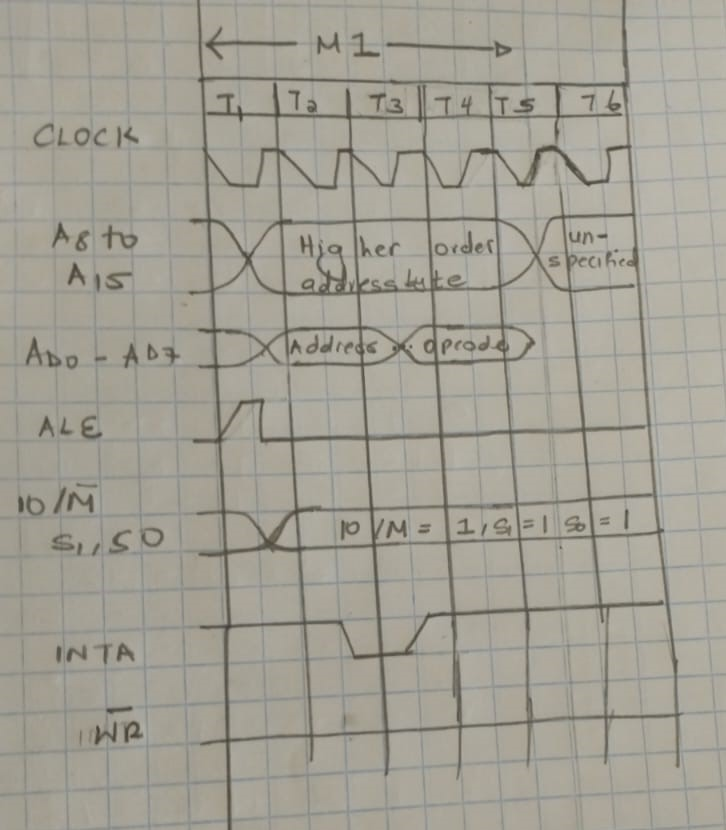 M1
T1 T2 T3 T4 T5 T6
CLOCK
A8 to
A15
Higher order
address byte
un-
specified
AD0 - AD7
Address
opcode
ALE
IO/M̅
S1, S0
IO/M = 1, S1 = 1 S0 = 1
INTA
W̅R̅